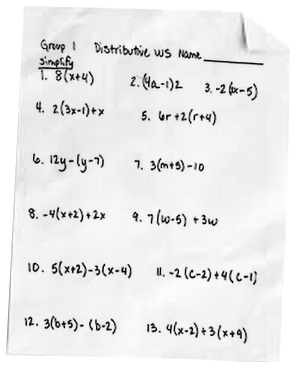 Group 1 Distributive WS Name
Simplify
1. 8(x+4) 2. (4a-1)2 3. -2(6x-5)
4. 2(3x-1)+x 5. 6r+2(r+4)
6. 12y-(y-7) 7. 3(m+5)-10
8. -4(x+2)+2x 9. 7(w-5)+3w
10. 5(x+2)-3(x-4) 11. -2(c-2)+4(c-1)
12. 3(b+5)-(b-2) 13. 4(x-2)+3(x+9)